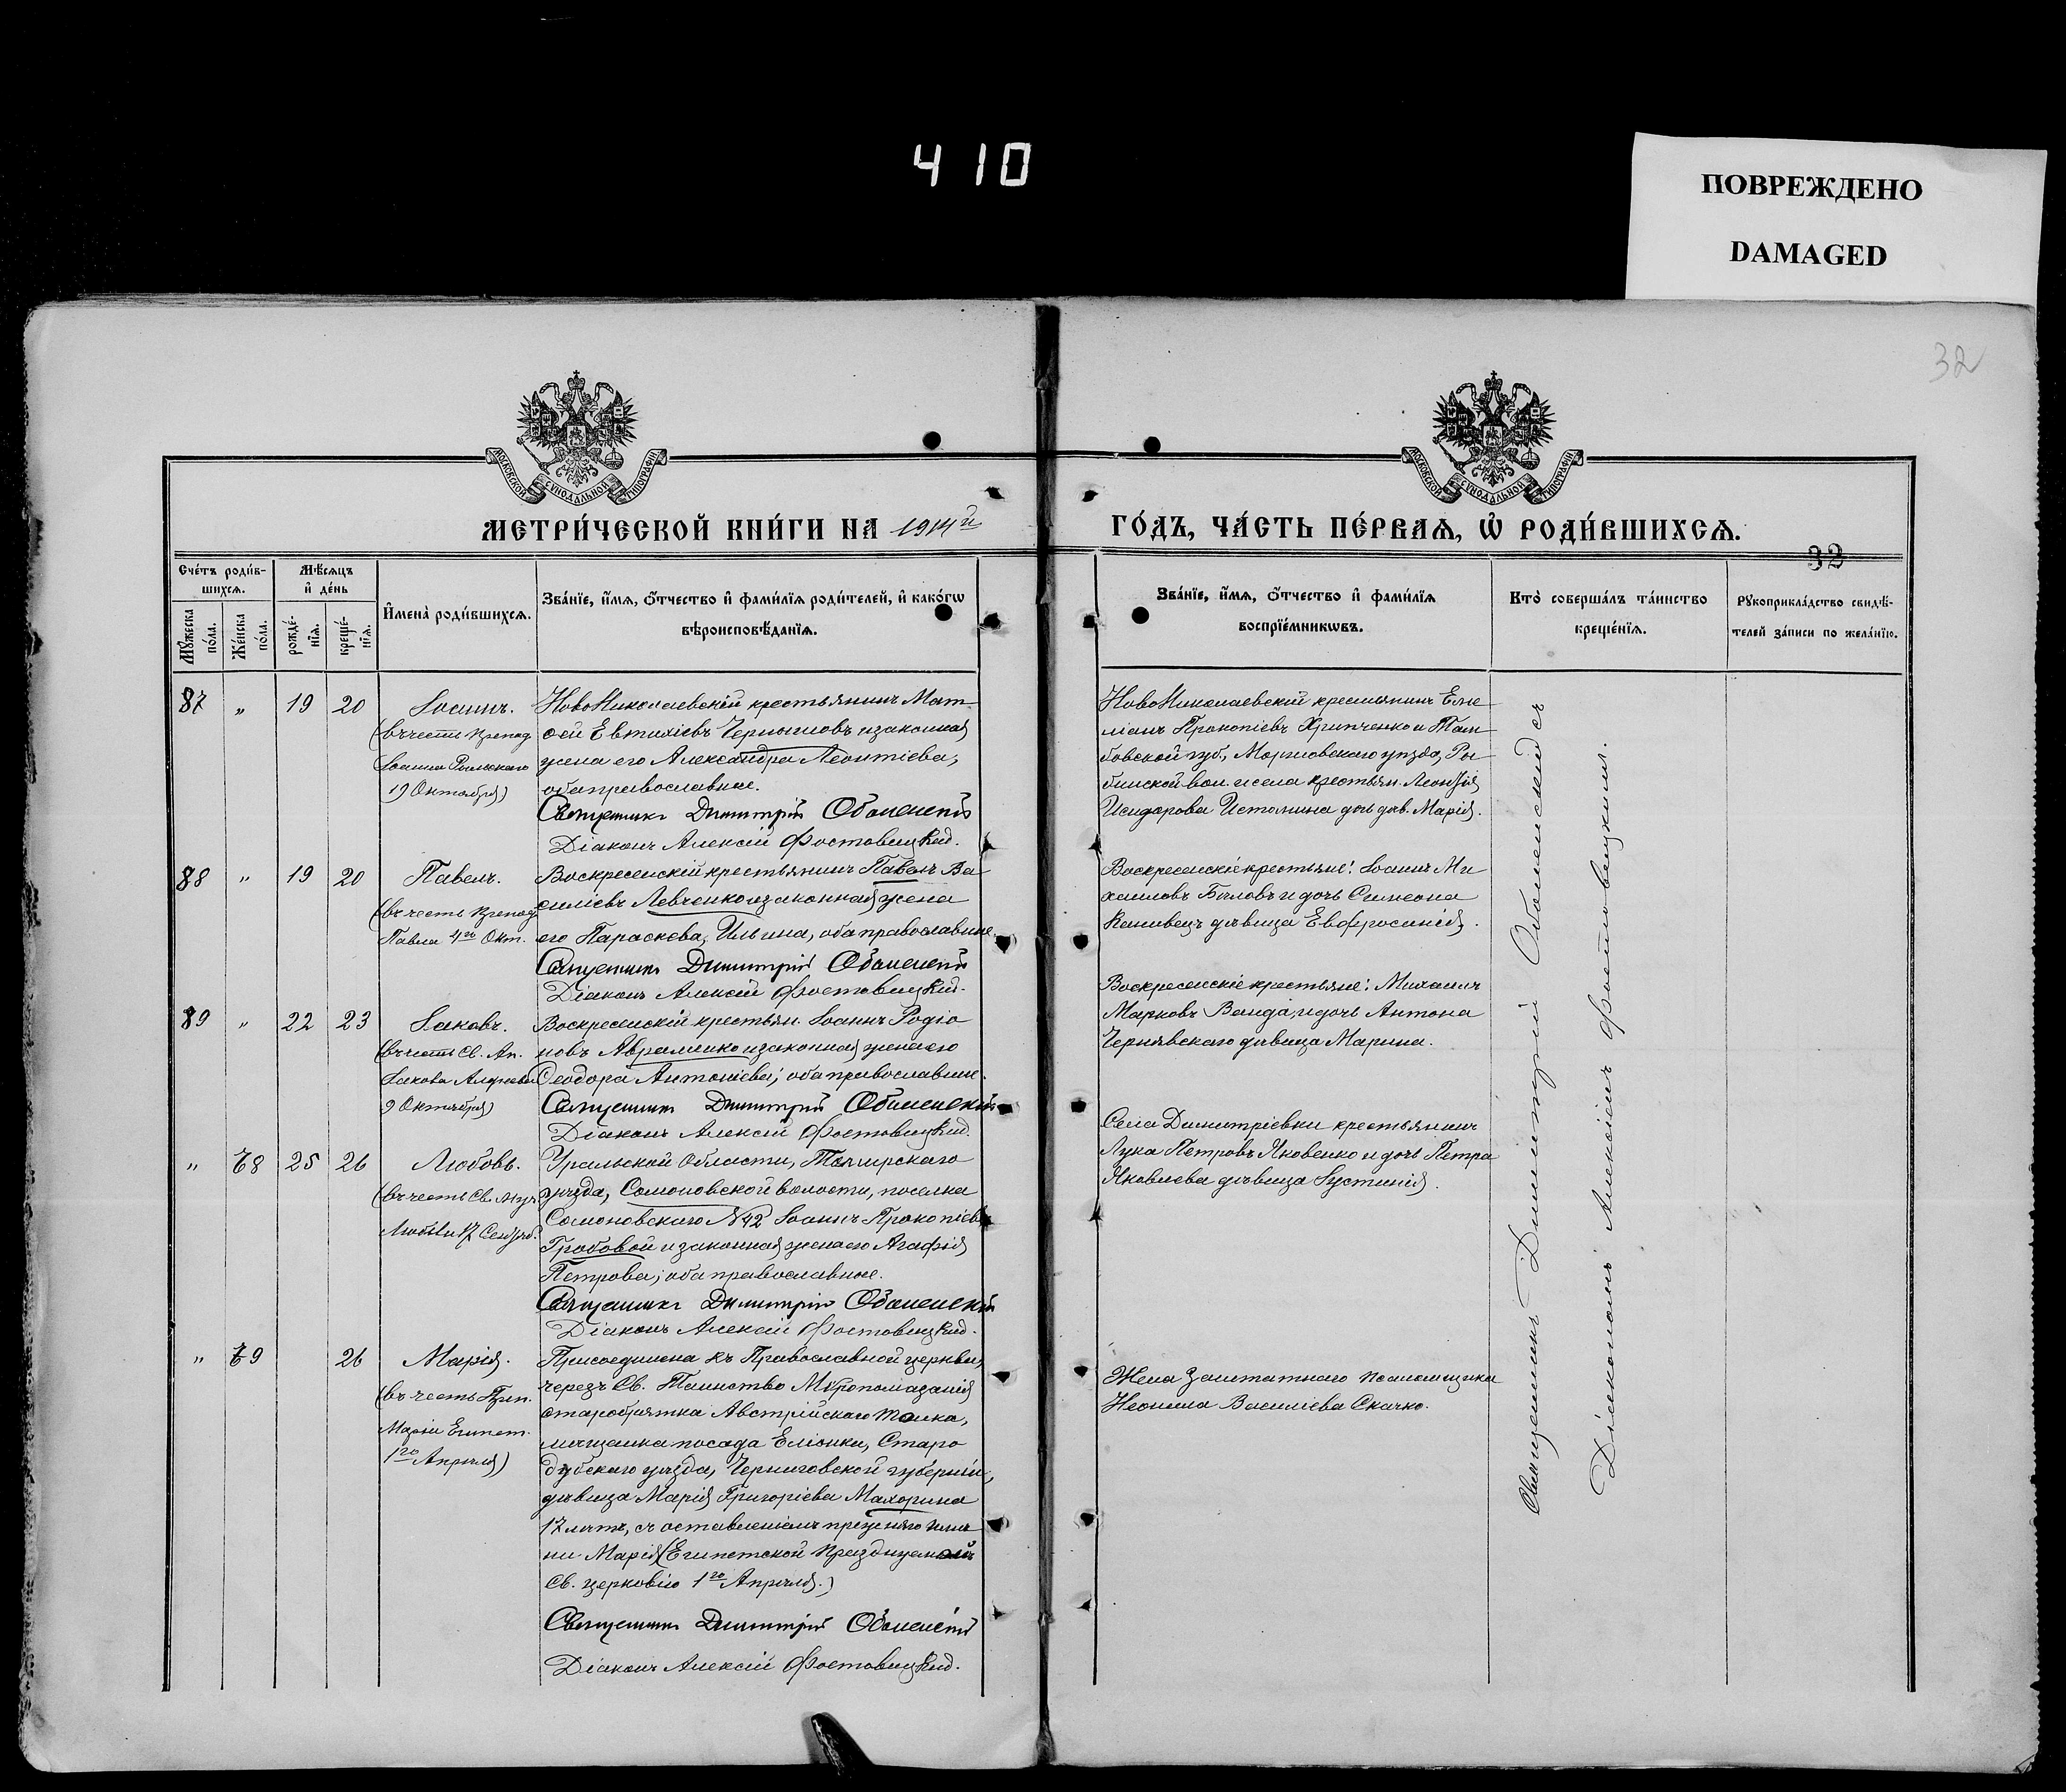 410
ПОВРЕЖДЕНО
DAMAGED
32
МОСКОВСКОЙ СѴНОДАЛЬНОЙ ТИПОГРАФІИ
МОСКОВСКОЙ СѴНОДАЛЬНОЙ ТИПОГРАФІИ
МЕТРИ́ЧЕСКОЙ КНИ́ГИ НА 1914й
ГО́ДЪ, ЧА́СТЬ ПЕ́РВАѦ, Ѡ҆ РОДИ́ВШИХСѦ.
32
Сче́тъ роди́в-
шихсѧ.
Мꙋ́жеска по́ла.
Же́нска по́ла.
Мѣ́сѧцъ
и҆ де́нь
рожде́-нїѧ.
креще́-нїѧ.
И҆мена̀ роди́вшихсѧ.
Зва́нїе, и҆́мѧ, ѻ҆́тчество и҆ фами́лїѧ роди́телей, и҆ како́гѡ
вѣроисповѣ́данїѧ.
Зва́нїе, и҆́мѧ, ѻ҆́тчество и҆ фами́лїѧ
воспрїе́мникѡвъ.
Кто̀ соверша́лъ та́инство
креще́нїѧ.
Рꙋкоприкла́дство свидѣ́-
телей за́писи по жела́нїю.
87 " 19 20 Іоаннъ.
(въ честь Препод
Іоанна Рыльскаго
19 Октября)
НовоНиколаевскій крестьянинъ Мат
ѳей Евтихіевъ Чернышовъ и законная
жена его Александра Леонтіева,
оба православные.
Священникъ Димитрій Оболенскій
Діаконъ Алексій Фостовецкій.
НовоНиколаевскій крестьянинъ Еме
ліанъ Прокопіевъ Хрипченко и Там
бовской губ., Моршовскаго уѣзда, Ры
бинской вол. и села крестьян. Леонтія
Исидорова Истомина дочь дѣв. Марія.
88 " 19 20 Павелъ.
(въ честь Препод
Павла 4го Окт.
Воскресенскій крестьянинъ Павелъ Ва
силіевъ Левченко и законная жена
его Параскева Ильина, оба православные.
Священникъ Димитрій Оболенскій
Діаконъ Алексій Фостовецкій.
Воскресенскіе крестьяне: Іоаннъ Ми
хаиловъ Бѣловъ и дочь Симеона
Канивецъ дѣвица Евфросинія.
89 " 22 23 Іаковъ.
(въ честь Св. Ап.
Іакова Алфеева
9 Октября)
Воскресенскій крестьян. Іоаннъ Родіо
новъ Авраменко и законная жена его
Ѳеодора Антоніева; оба православные.
Священникъ Димитрій Оболенскій
Діаконъ Алексій Фостовецкій.
Воскресенскіе крестьяне: Михаилъ
Марковъ Ванда, и дочь Антона
Чернявскаго дѣвица Марина.
" 68 25 26 Любовь.
(въ честь Св. Муч
Любви 17 Сентяб.
Уральской Области, Темирскаго
уѣзда, Сомоновской волости, поселка
Сомоновскаго №42 Іоаннъ Прокопіевъ
Гробовой и законная жена его Агафія
Петрова; оба православные.
Священникъ Димитрій Оболенскій
Діаконъ Алексій Фостовецкій.
Села Димитріевки крестьянинъ
Лука Петровъ Яковенко и дочь Петра
Яковлева дѣвица Іустинія.
" 69 26 Марія.
(въ честь Прп.
Маріи Египет.
1го Апрѣля)
Присоединена къ Православной церкви,
чрезъ Св. Таинство Мѵропомазанія
старообрятка Австрійскаго толка,
мѣщанка посада Еліонки, Старо
дубскаго уѣзда, Черниговской губерніи,
дѣвица Марія Григоріева Махорина
17 лѣтъ, съ оставленіемъ прежняго име
ни Марія (Египетской празднуемой
Св. церковію 1го Апрѣля.)
Священникъ Димитрій Оболенскій
Діаконъ Алексій Фостовецкій.
Жена Заштатнаго псаломщика
Неонила Василіева Скачко.
Священникъ Димитрій Оболенскій съ
Діакономъ Алексіемъ Фостовецкимъ.